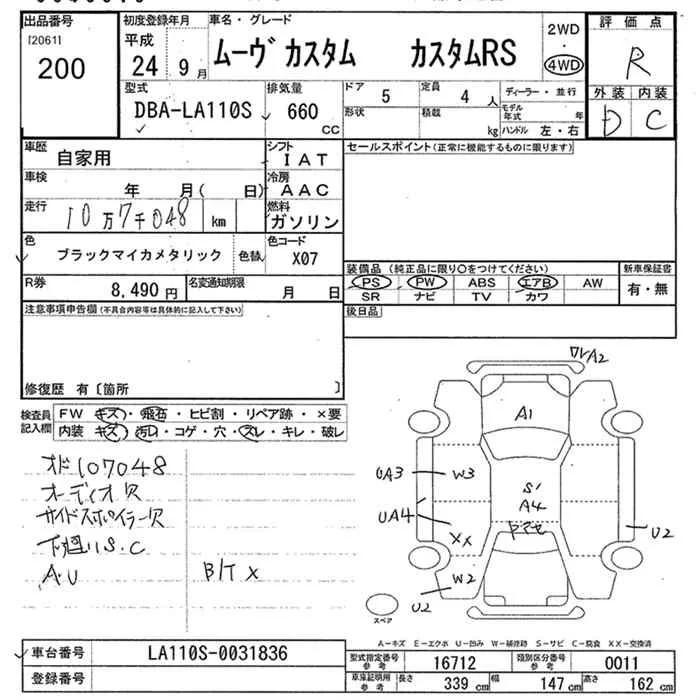 出品番号
[2061]
200
初度登録年月
平成
24 9月
車名・グレード
ムーヴ カスタム カスタムRS
2WD
・
4WD
評価点
R
外装 内装
D C
型式
DBA-LA110S
排気量
660
CC
ドア
5
定員
4 人
形状
積載
kg
ディーラー・並行
モデル年式 年
ハンドル 左・右
車歴
自家用
シフト
IAT
車検
年 月( 日)
冷房
AAC
走行
10万7千048 km
燃料
ガソリン
色
ブラックマイカメタリック
色替
色コード
X07
R券
8,490 円
名変通知期限
月 日
セールスポイント(正常に機能するものに限ります)
装備品 (純正品に限り○をつけてください)
PS PW ABS エアB AW
SR ナビ TV カワ
新車保証書
有・無
後日品
注意事項申告欄(不具合内容は具体的に記入して下さい)
修復歴 有〔箇所 〕
検査員記入欄
FW キズ・飛石・ヒビ割・リペア跡・×要
内装 キズ・汚れ・コゲ・穴・スレ・キレ・破レ
オド107048
オーディオ欠
サイドスポイラー欠
下廻りS.C
A.U
B/T X
ワレA2
A1
UA3
W3
S1
A4
UA4
XX
U2
W2
U2
スペア
A-キズ E-エクボ U-凹み W-補修跡 S-サビ C-腐食 XX-交換済
車台番号
LA110S-0031836
登録番号
型式指定番号
参考
16712
類別区分番号
参考
0011
車庫証明用
参考
長さ
339 cm
幅
147 cm
高さ
162 cm